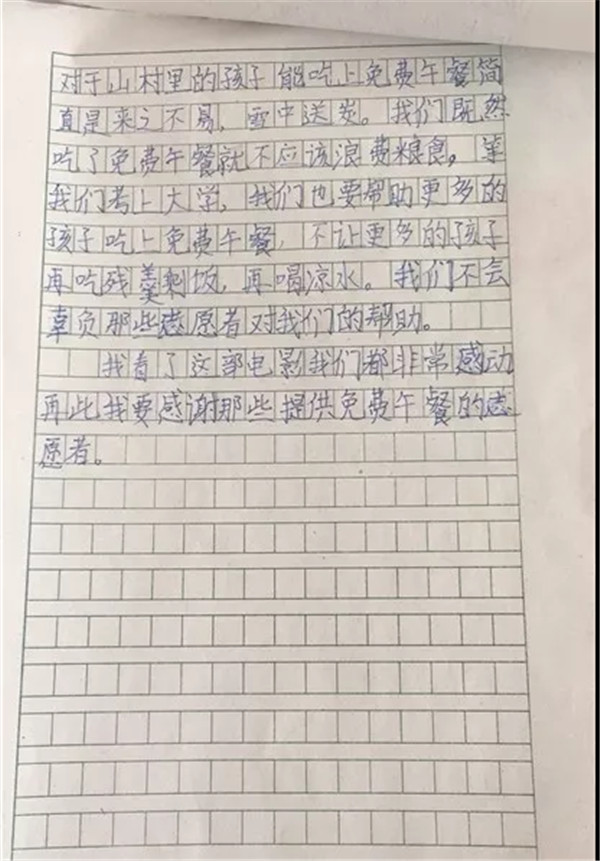 对于山村里的孩子能吃上免费午餐简
直是来之不易，雪中送炭。我们既然
吃了免费午餐就不应该浪费粮食。等
我们考上大学，我们也要帮助更多的
孩子吃上免费午餐，不让更多的孩子
再吃残羹剩饭，再喝凉水。我们不会
辜负那些志愿者对我们的帮助。
我看了这部电影我们都非常感动
再此我要感谢那些提供免费午餐的志
愿者。